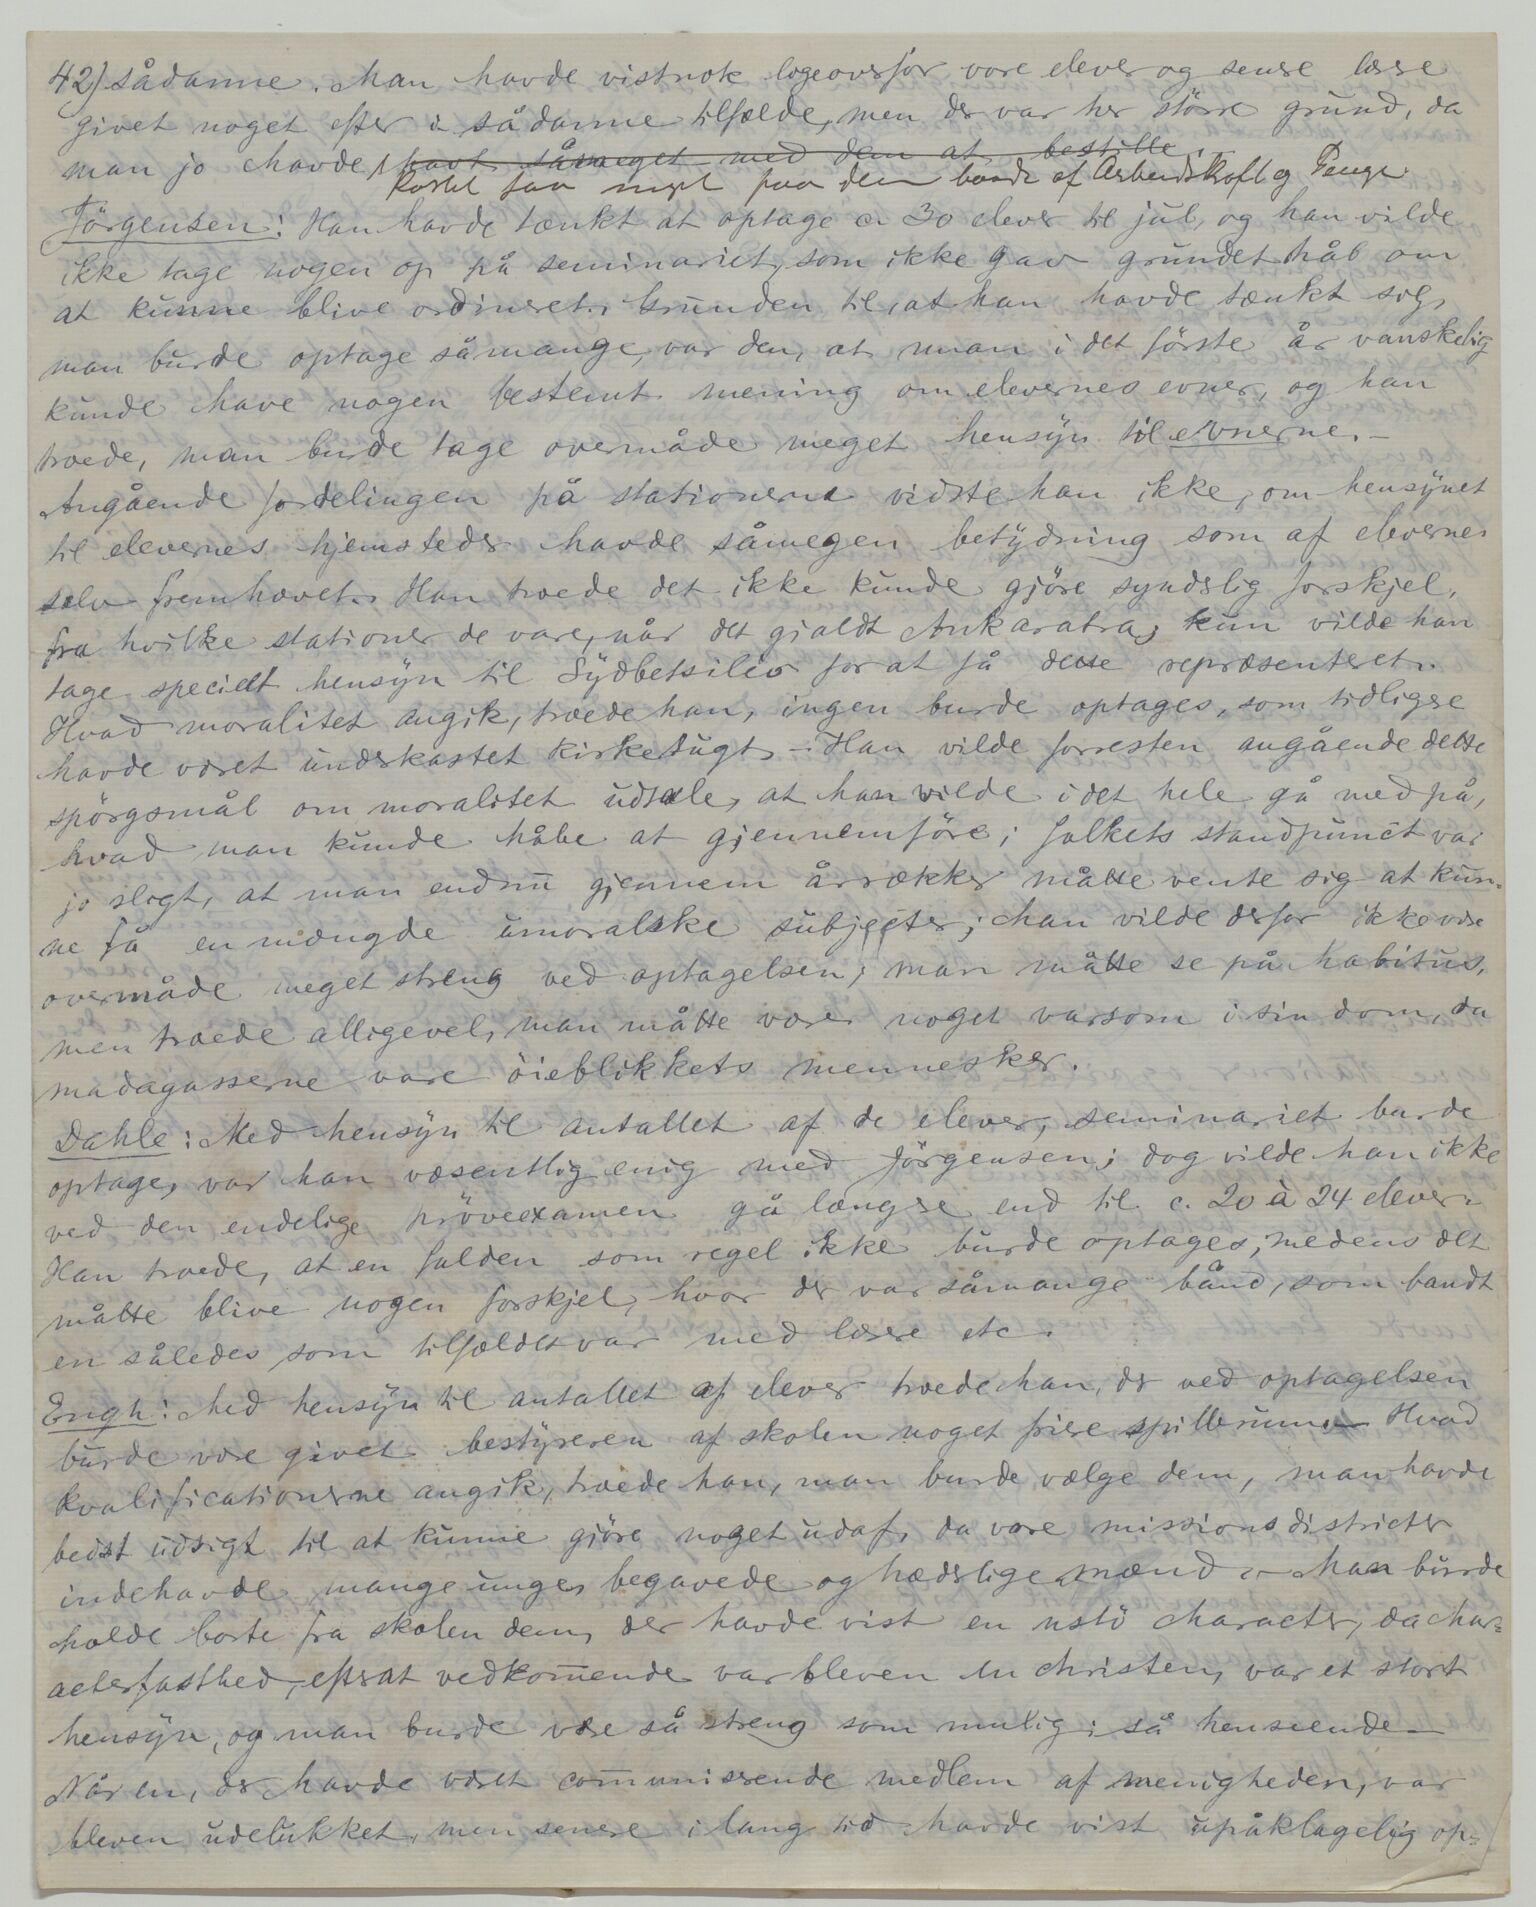 42) sådanne. Man havde vistnok ligeoverfor vore elever og senere lærere
givet noget efter i sådanne tilfælde, men der var her större grund, da
man jo havde havt såmeget med dem at bestille.
kostet saa meget paa dem baade af Arbeidskraft og Penge
Jörgensen: Han havde tænkt at optage ca 30 elever til jul, og han vilde
ikke tage nogen op på seminariet, som ikke gav grundet håb om
at kunne blive ordineret. Grunden til, at han havde tænkt sig,
man burde optage såmange, var den, at man i det förste år vanskelig
kunde have nogen bestemt mening om elevernes evner, og han
troede, man burde tage overmåde meget hensyn til evnerne. –
Angående fordelingen på stationerne vidste han ikke, om hensynet
til elevernes hjemsteder havde såmegen betydning som af eleverne
selv fremhævet. Han troede det ikke kunde gjöre synderlig forskjel,
fra hvilke stationer de vare, når det gjaldt Ankaratra; kun vilde han
tage specielt hensyn til Sydbetsileo for at få dette repræsenteret.
Hvad moralitet angik, troede han, ingen burde optages, som tidligere
havde været underkastet kirketugt. – Han vilde forresten angående dette
spörgsmål om moralitet udtale, at han vilde i det hele gå med på,
hvad man kunde håbe at gjennemföre; folkets standpunct var
jo sligt, at man endnu gjennem årrækker måtte vente sig at kun-
ne få en mængde umoralske subjecter; han vilde derfor ikke være
overmåde meget streng ved optagelsen; man måtte se på habitus,
men troede alligevel, man måtte være noget varsom i sin dom, da
madagasserne vare öieblikkets mennesker.
Dahle: Med hensyn til antallet af de elever, seminariet burde
optage, var han væsentlig enig med Jörgensen; dog vilde han ikke
ved den endelige pröveexamen gå længere end til c. 20 à 24 elever.
Han troede, at en falden som regel ikke burde optages, medens det
måtte blive nogen forskjel, hvor der var såmange bånd, som bandt
en således som tilfældet var med lærere etc.
Engh: Med hensyn til antallet af elever troede han, der ved optagelsen
burde være givet bestyreren af skolen noget friere spillerum. Hvad
kvalificationerne angik, troede han, man burde vælge dem, man havde
bedst udsigt til at kunne gjöre noget udaf, da vore missionsdistricter
indehavde mange unge, begavede og hæderlige mænd. – Man burde
holde borte fra skolen dem, der havde vist en ustö character, da char-
acterfasthed, efterat vedkommende var bleven en christen, var et stort
hensyn, og man burde være så streng som mulig i så henseende –
Når en, der havde været communiserende medlem af menigheden, var
bleven udelukket, men senere i lang tid havde vist upåklagelig op-